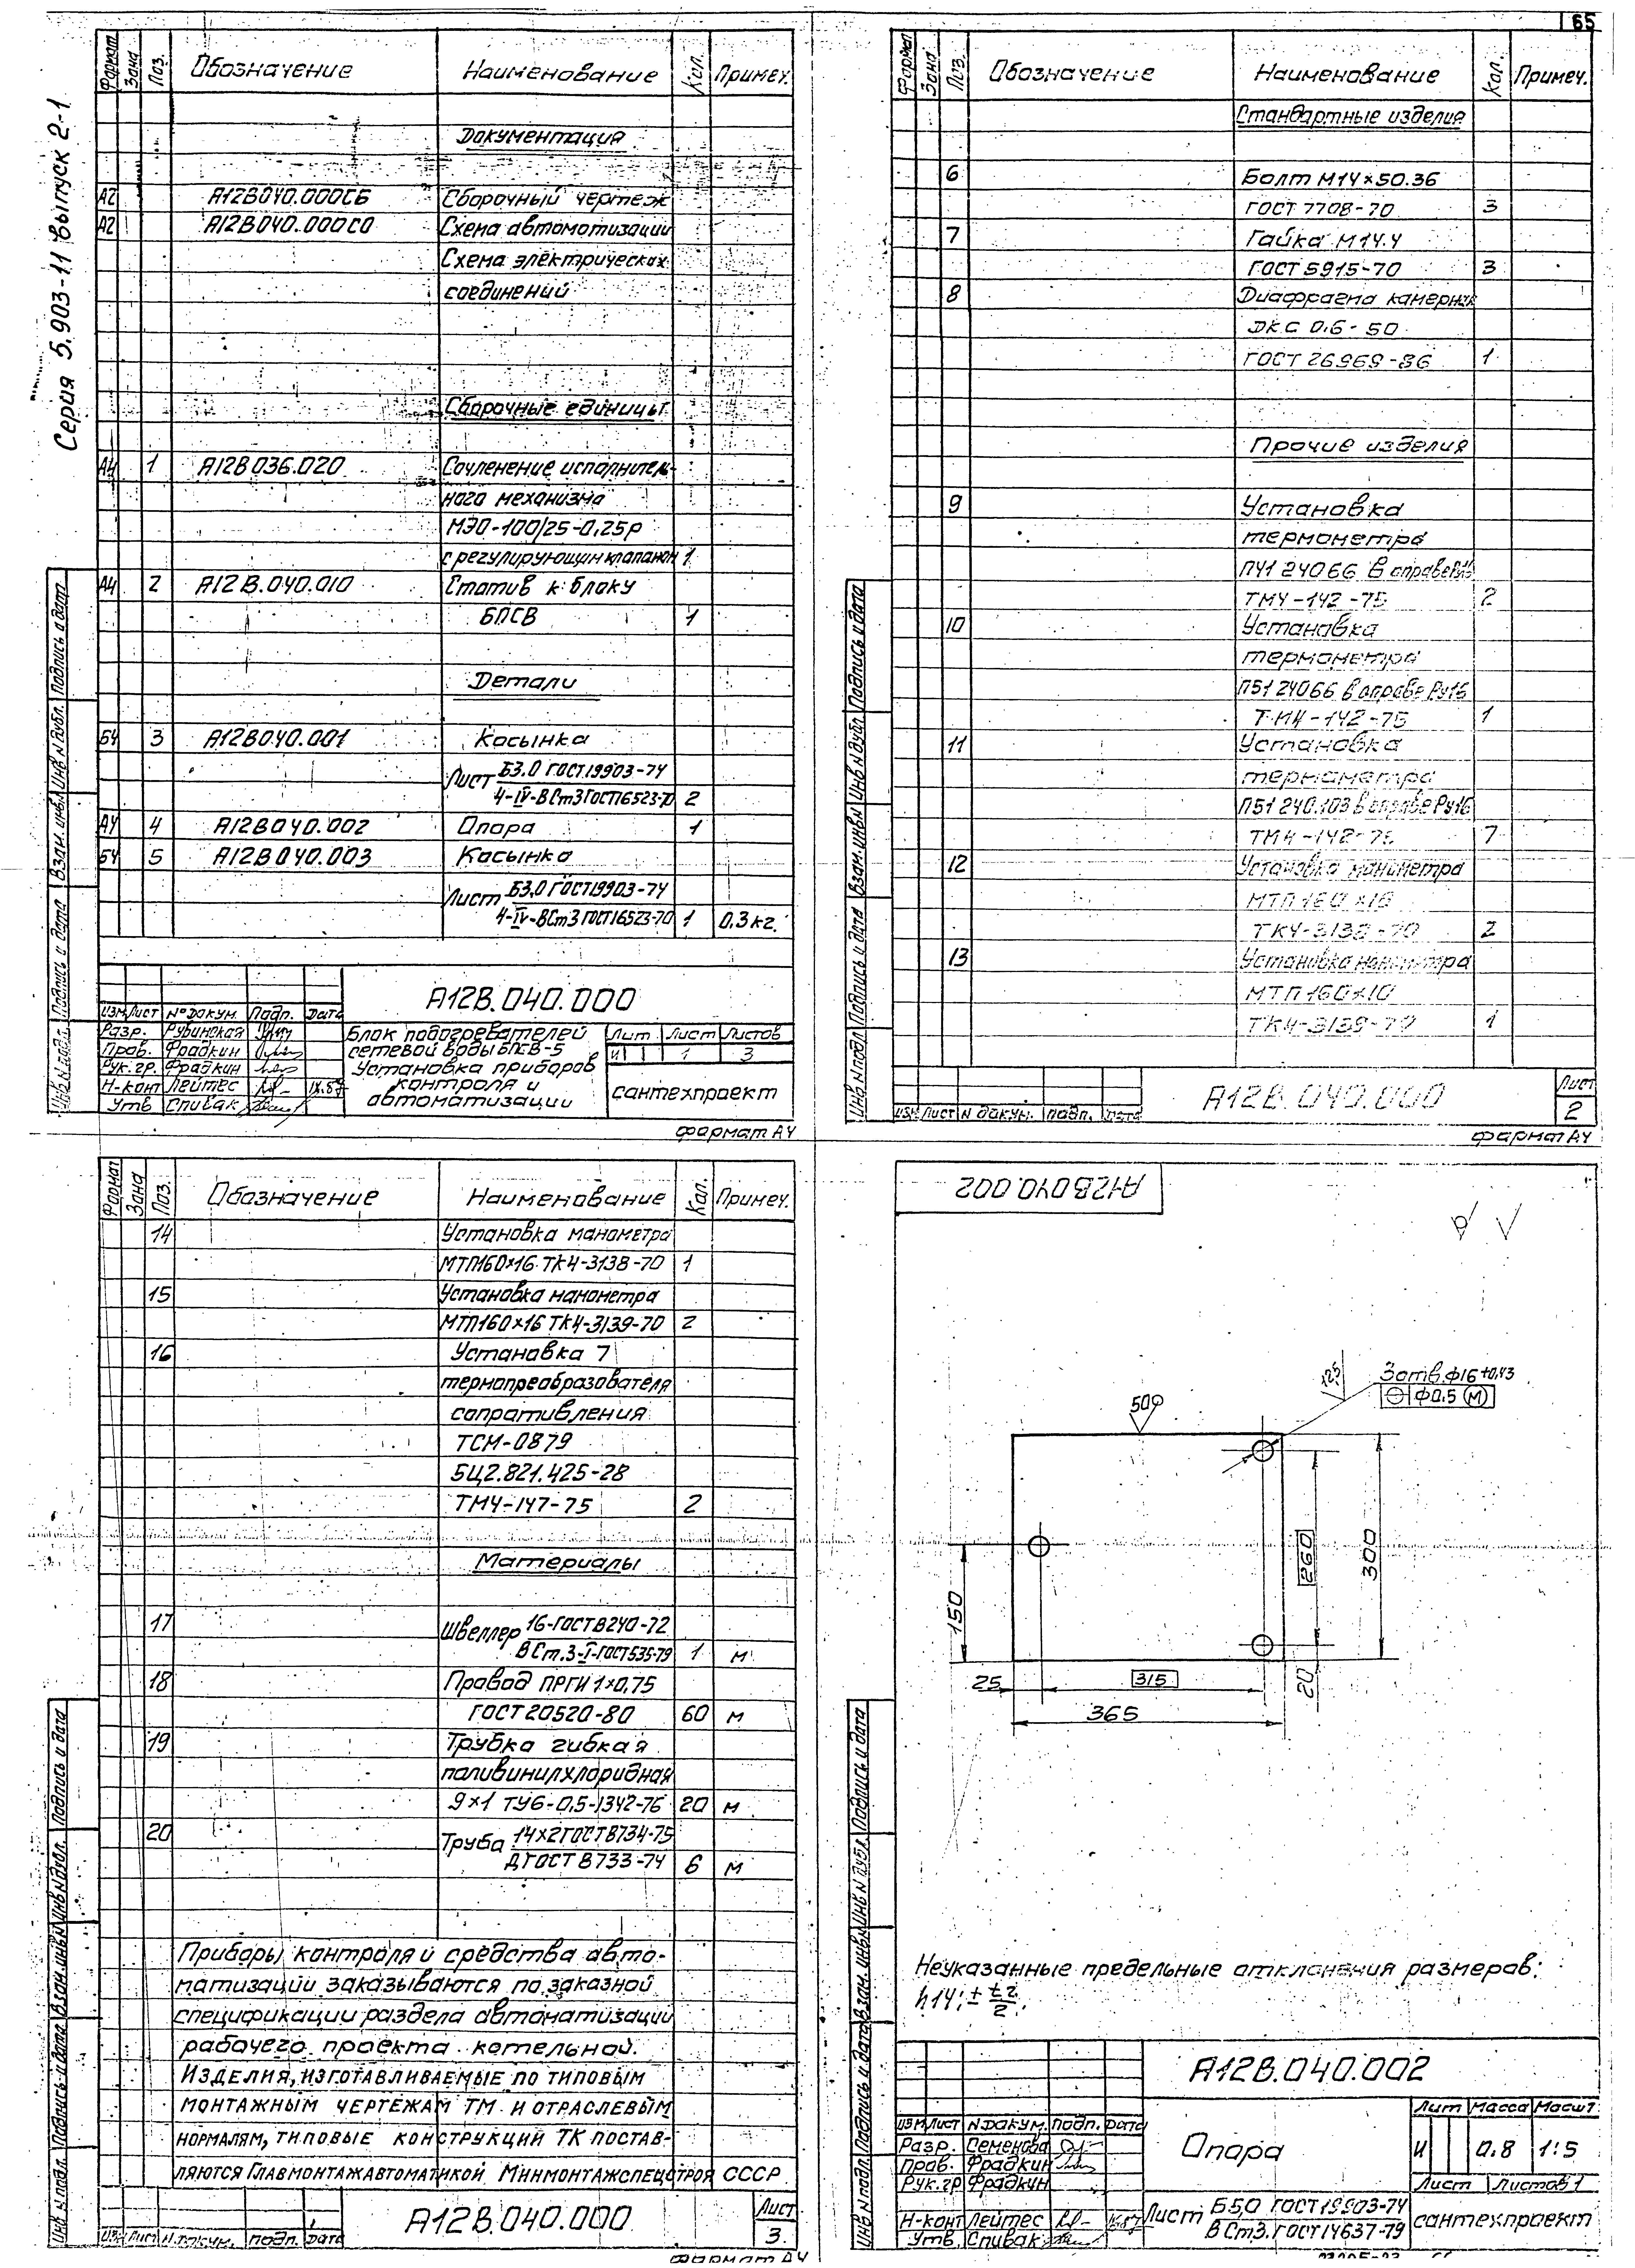 65
Серия 5.903-11 выпуск 2-1
Формат Зона Поз. Обозначение Наименование Кол. Примеч.
Документация
А2 А12В040.000СБ Сборочный чертеж
А2 А12В040.000СО Схема автоматизации
Схема электрических
соединений
Сборочные единицы
А4 1 А12В036.020 Сочленение исполнитель-
ного механизма
МЭО-100/25-0,25Р
с регулирующим клапаном 1
А4 2 А12В.040.010 Статив к блоку
БПСВ 1
Детали
БЧ 3 А12В040.001 Косынка
Лист Б3,0 ГОСТ19903-74
4-IV-ВСт3ГОСТ16523-70 2
А4 4 А12В040.002 Опора 1
БЧ 5 А12В040.003 Косынка
Лист Б3,0 ГОСТ19903-74
4-IV-ВСт3 ГОСТ16523-70 1 0,3кг.
А12В.040.000
Изм. Лист № докум. Подп. Дата
Разр. Рубинская
Пров. Фрадкин
Рук.гр. Фрадкин
Н-конт Лейтес
Утв Спивак
Блок подогревателей
сетевой воды БПСВ-5
Установка приборов
контроля и
автоматизации
Лит. Лист Листов
И 1 3
сантехпроект
Инв N подл. Подпись и дата Взам. инв. N Инв N дубл. Подпись и дата
формат А4
Формат Зона Поз. Обозначение Наименование Кол. Примеч.
Стандартные изделия
6 Болт М14×50.36
ГОСТ 7798-70 3
7 Гайка М14.4
ГОСТ 5915-70 3
8 Диафрагма камерная
ДКС 0,6-50
ГОСТ 26969-86 1
Прочие изделия
9 Установка
термометра
П41 24066 в оправе Ру16
ТМ4-142-75 2
10 Установка
термометра
П51 24066 в оправе Ру16
ТМ4-142-75 1
11 Установка
термометра
П51 240.103 в оправе Ру16
ТМ4-142-75 7
12 Установка манометра
МТП 160×16
ТК4-3138-70 2
13 Установка манометра
МТП 160×10
ТК4-3139-70 1
Изм. Лист N докум. Подп. Дата
А12В.040.000
Лист
2
Инв N подл. Подпись и дата Взам. инв N Инв N дубл. Подпись и дата
формат А4
Формат Зона Поз. Обозначение Наименование Кол. Примеч.
14 Установка манометра
МТП160×16 ТК4-3138-70 1
15 Установка манометра
МТП160×16 ТК4-3139-70 2
16 Установка 7
термопреобразователя
сопротивления
ТСМ-0879
5Ц2.821.425-28
ТМ4-147-75 2
Материалы
17 Швеллер 16-ГОСТ8240-72
ВСт.3-I-ГОСТ535-79 1 м
18 Провод ПРГИ 1×0,75
ГОСТ 20520-80 60 м
19 Трубка гибкая
поливинилхлоридная
9×1 ТУ6-0,5-1342-76 20 м
20 Труба 14×2ГОСТ8734-75
ДГОСТ 8733-74 6 м
Приборы контроля и средства авто-
матизации заказываются по заказной
спецификации раздела автоматизации
рабочего проекта котельной.
Изделия, изготавливаемые по типовым
монтажным чертежам ТМ и отраслевым
нормалям, типовые конструкций ТК постав-
ляются Главмонтажавтоматикой Минмонтажспецстроя СССР
Изм. Лист N докум. Подп. Дата
А12В.040.000
Лист
3.
Инв N подл. Подпись и дата Взам. инв N Инв N дубл. Подпись и дата
формат А4
А12В040.002
3отв.ф16+0,43
ф0.5 М
12,5
50
260
300
150
25
315
20
365
Неуказанные предельные отклонения размеров:
h14; ± t2/2.
А12В.040.002
Изм Лист N докум. Подп. Дата
Разр. Семенова
Пров. Фрадкин
Рук.гр Фрадкин
Н-конт Лейтес
Утв. Спивак
Опора
Лит Масса Масшт
И 0.8 1:5
Лист Листов 1
Лист Б5,0 ГОСТ19903-74
ВСт3.ГОСТ14637-79
сантехпроект
Инв N подл. Подпись и дата Взам. инв N Инв N дубл. Подпись и дата